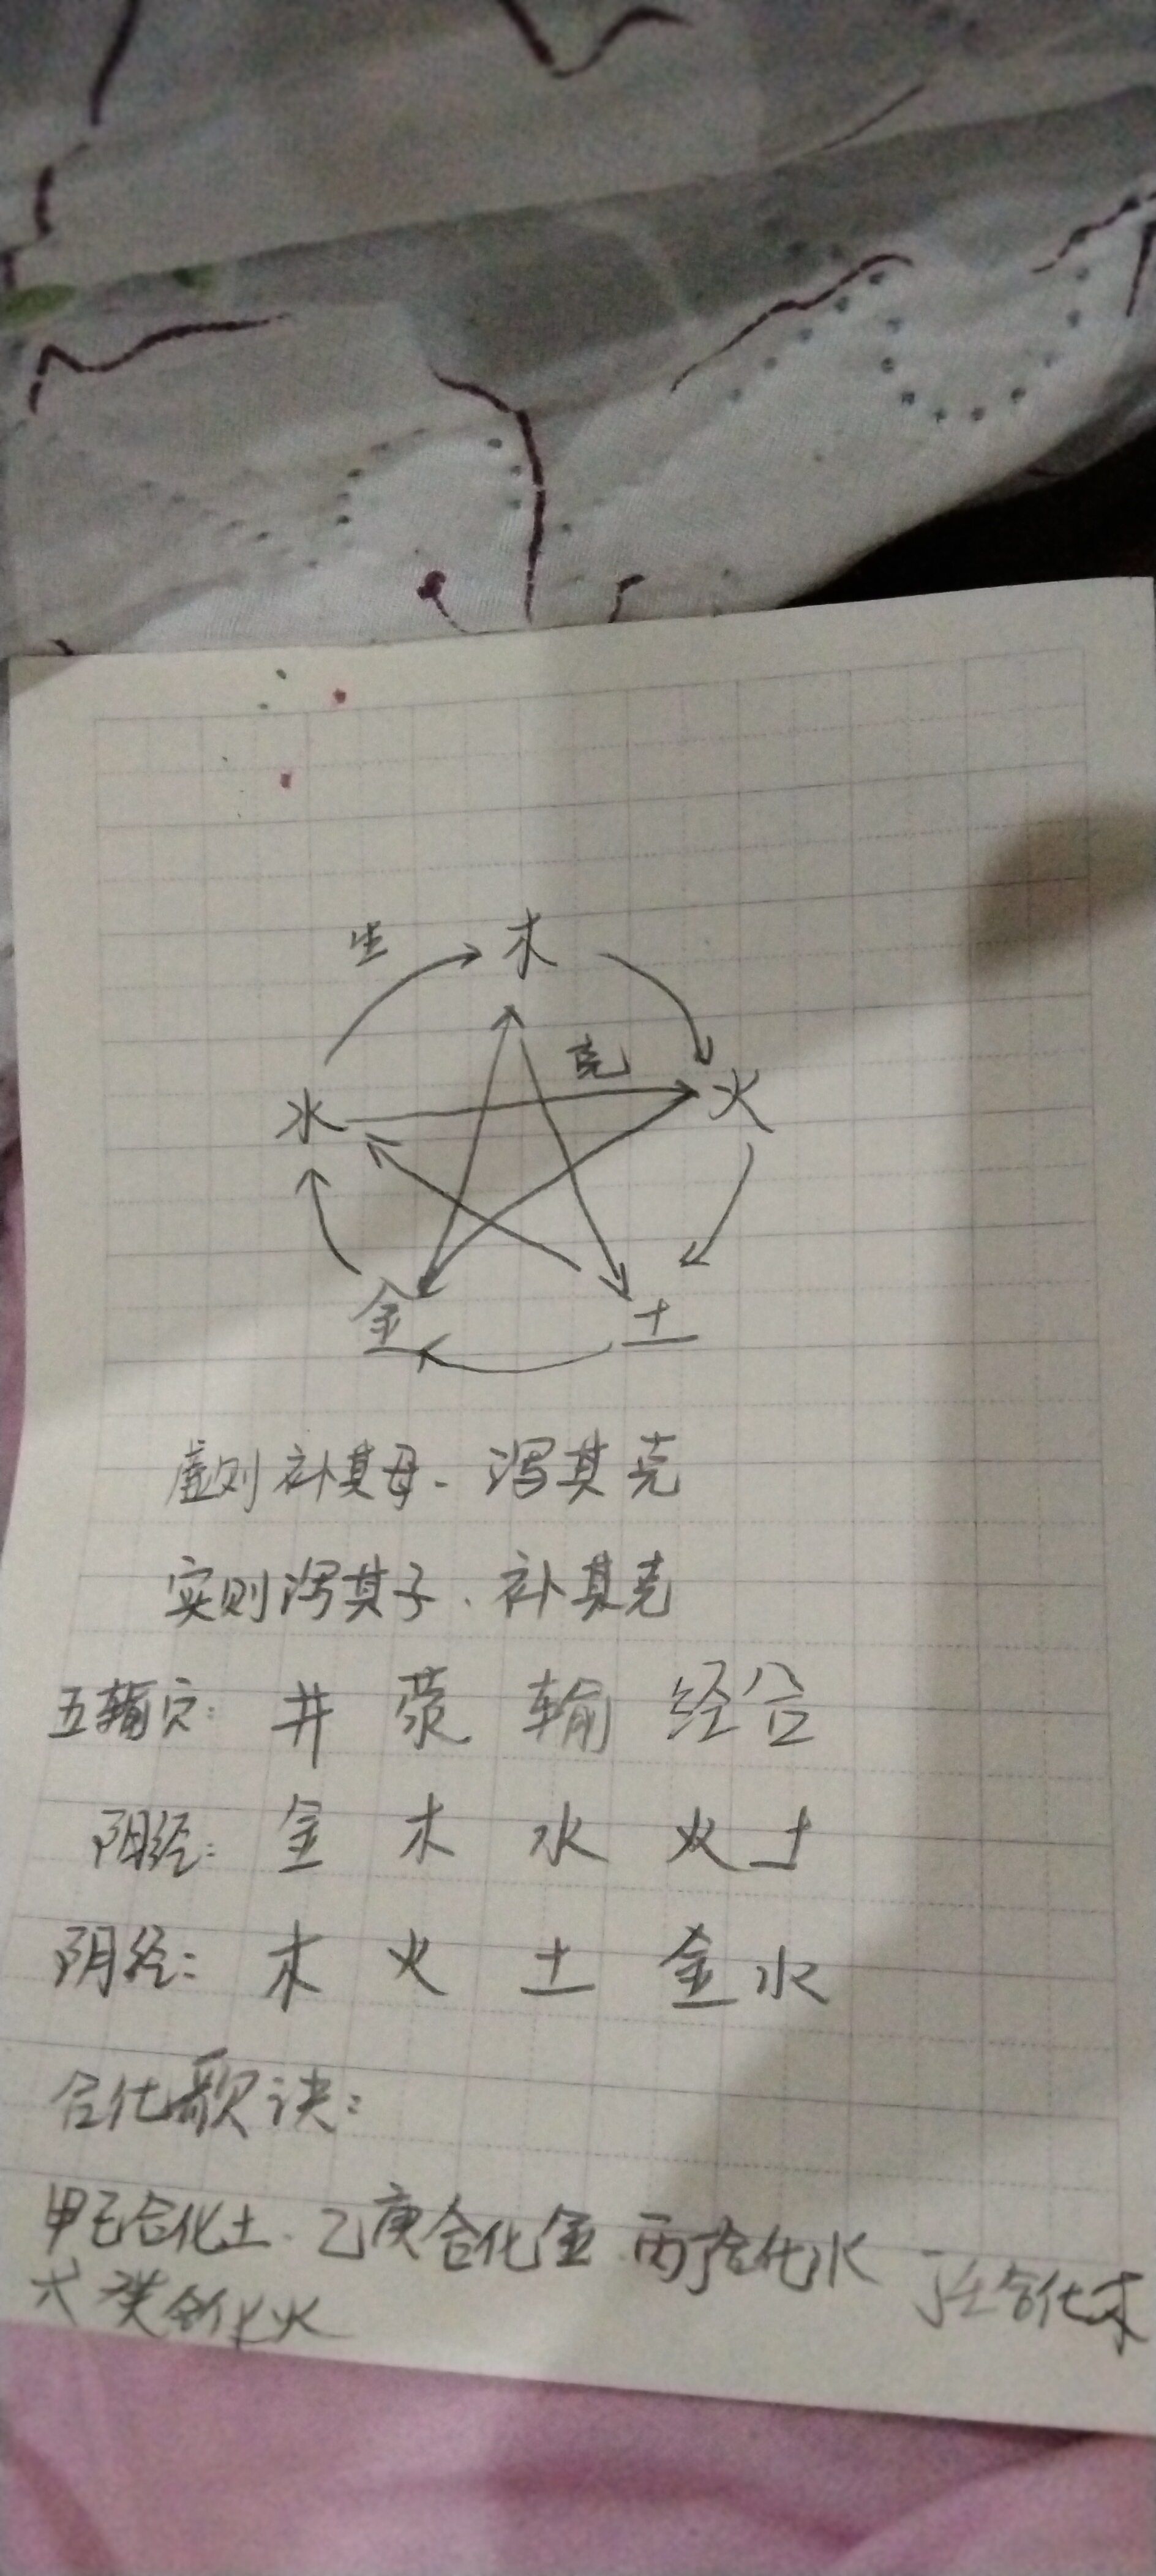 生 木
克
水 火
金 土
虚则补其母、泻其克
实则泻其子、补其克
五输穴: 井 荥 输 经 合
阳经: 金 木 水 火 土
阴经: 木 火 土 金 水
合化歌诀:
甲己合化土、乙庚合化金、丙辛合化水 丁壬合化木
戊癸合化火